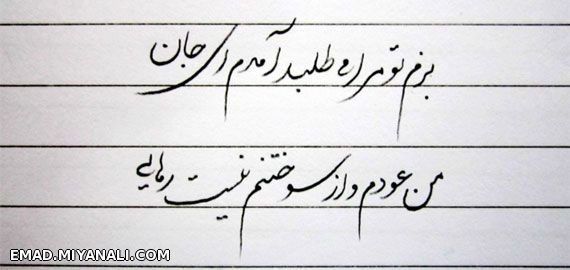 بزم تو مرا می طلبد آمدم ای جان
من عودم و از سوختنم نیست رهایی
EMAD.MIYANALI.COM